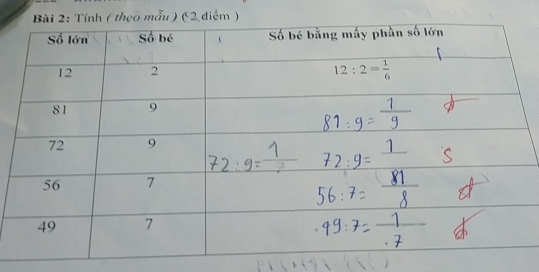 Bài 2: Tính ( theo mẫu ) ( 2 điểm )
Số lớn Số bé Số bé bằng mấy phần số lớn
12 2 12 : 2 = 1/6
81 9 81 : 9 = 1/9 đ
72 9 72 : 9 = 1/ 72 : 9 = 1/ S
56 7 56 : 7 = 81/8 đ
49 7 49 : 7 = 1/7 đ